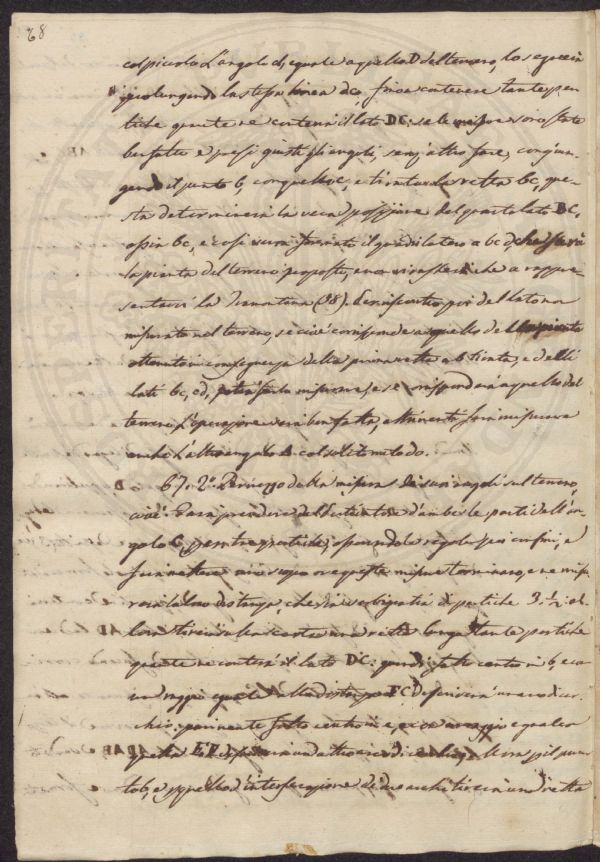 68
col piccolo l'angolo d, eguale a quello D del terreno, lo segnerà
prolungando la stessa linea dc, fino a contenere tante per
tiche quante ne conterrà il lato DC: se le misure sono state
ben fatte e presi giusti gli angoli, senz'altro fare, congiun
gendo il punto b, con quello c, e tirata la retta bc, que
sta determinerà la vera posizione del quarto lato BC,
ossia bc, e così sarà formato il quadrilatero abcd che sarà
la pianta del terreno proposto, ove vi resterà che a rappre
sentarvi la Tramontana (38). Per riscontro poi del lato non
misurato nel terreno, se cioè corrisponde a quello della pianta
ottenuto in conseguenza della prima retta ab tirata, e delli
lati bc, cd, potrà farla misurare, e se corrisponderà a quello del
terreno l'operazione sarà ben fatta, altrimenti farà misurare
anche l'altro angolo col solito metodo.
67. 2.° Per mezzo della misura di suoi angoli sul terreno,
cioè: Farà prendere dall'estensione d'ambi le parti dell'an
golo C, pertiche, e
farà mettere uno scopo ove queste misure terminano, e ne misu
rerà la loro distanza, che sia verbigrazia di pertiche 3. ½ al
lora tirerà sulla carta una retta lunga tante pertiche
quante ne conterrà il lato DC: quindi fatto centro in b, e con
un raggio eguale alla distanza FC descriverà un arco di cer
chio: parimente fatto centro in e, con un raggio eguale a
quella EF descriverà un altro arco di cerchio, pel pun
to b, e quello d'intersezione di due archi tirerà una retta